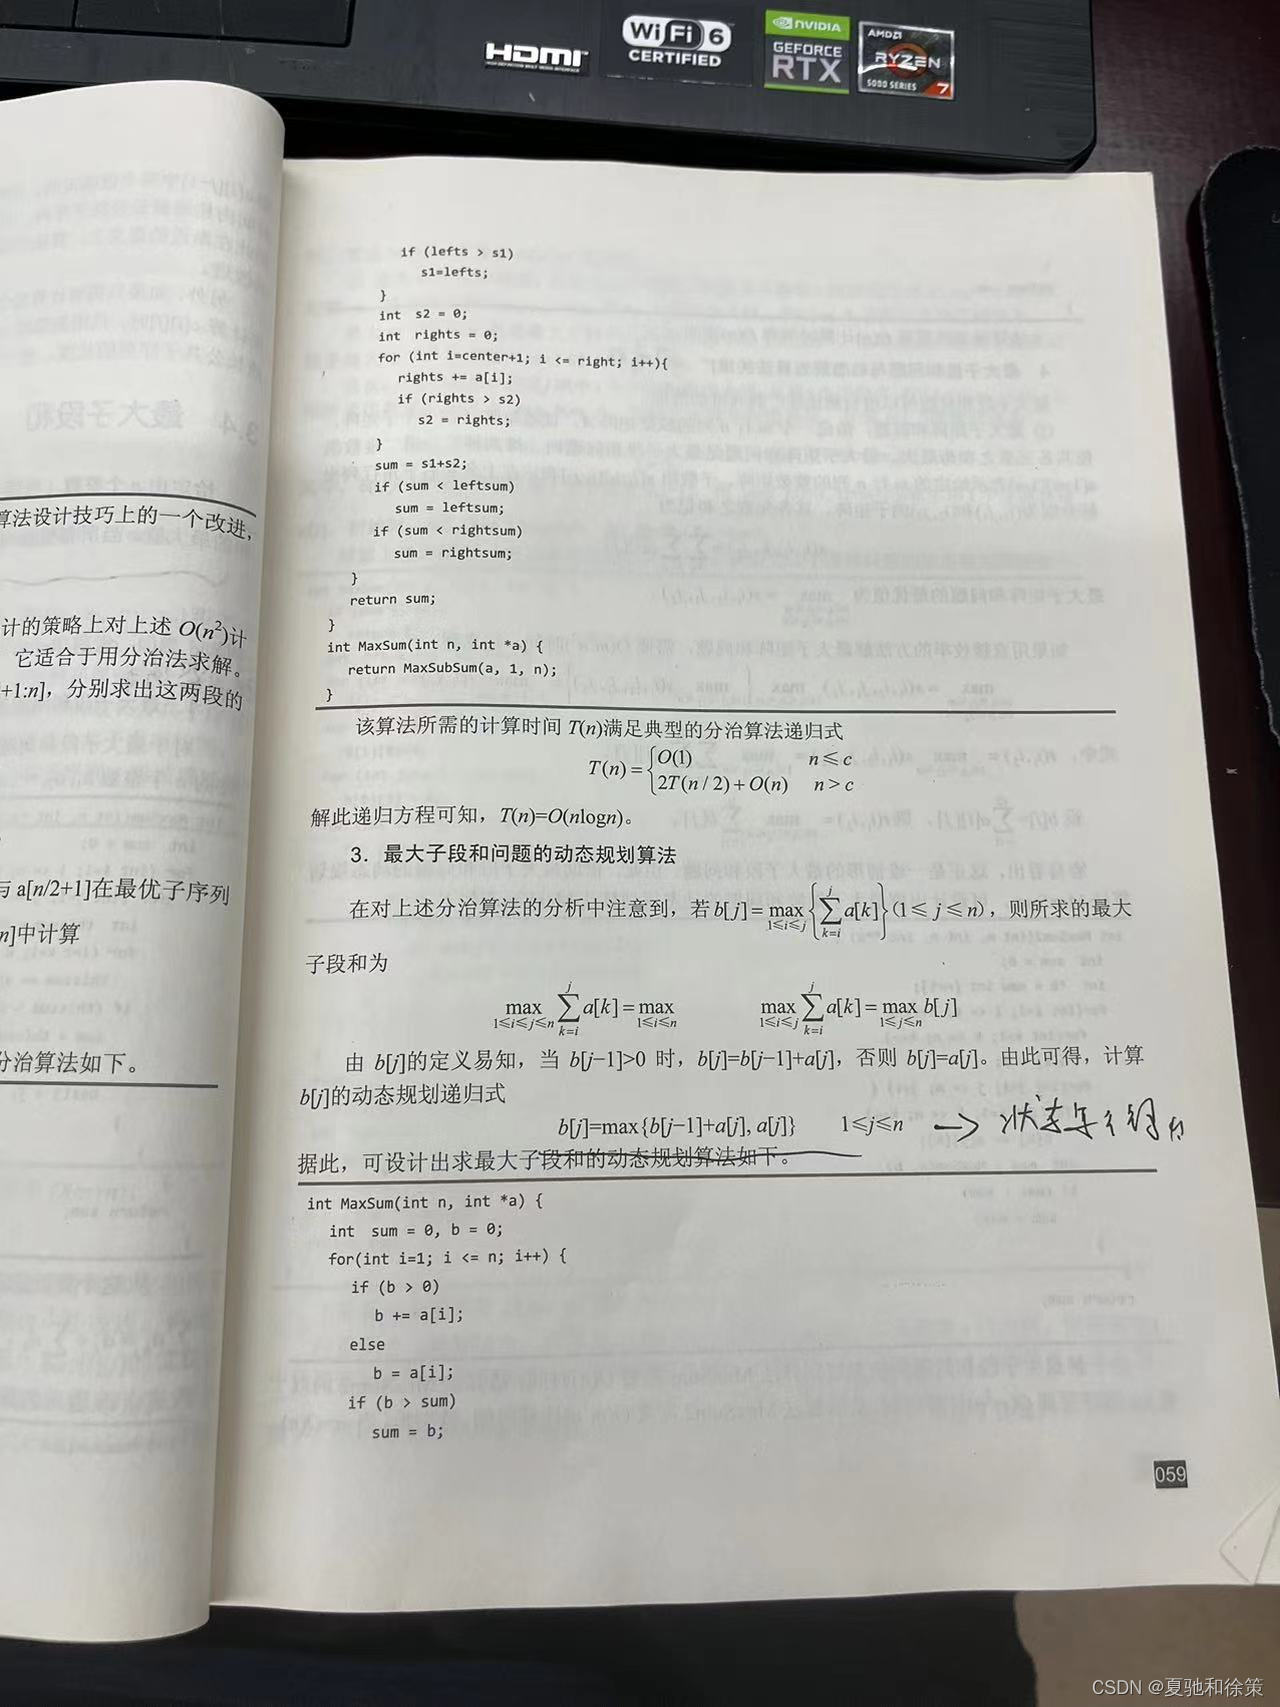 HDMI
HIGH-DEFINITION MULTIMEDIA INTERFACE
Wi Fi 6
CERTIFIED
NVIDIA
GEFORCE
RTX
AMD
RYZEN
5000 SERIES 7
3.4 最大子段和
算法设计技巧上的一个改进，
计的策略上对上述 O(n²)计
它适合于用分治法求解。
+1:n]，分别求出这两段的
与 a[n/2+1]在最优子序列
n]中计算
分治算法如下。
if (lefts > s1)
s1=lefts;
}
int s2 = 0;
int rights = 0;
for (int i=center+1; i <= right; i++){
rights += a[i];
if (rights > s2)
s2 = rights;
}
sum = s1+s2;
if (sum < leftsum)
sum = leftsum;
if (sum < rightsum)
sum = rightsum;
}
return sum;
}
int MaxSum(int n, int *a) {
return MaxSubSum(a, 1, n);
}
该算法所需的计算时间 T(n)满足典型的分治算法递归式
T(n) = { O(1) n ≤ c
2T(n / 2) + O(n) n > c
解此递归方程可知，T(n)=O(nlogn)。
3．最大子段和问题的动态规划算法
在对上述分治算法的分析中注意到，若 b[j] = max 1≤i≤j { ∑ k=i j a[k] } (1≤ j ≤ n)，则所求的最大
子段和为
max 1≤i≤j≤n ∑ k=i j a[k] = max 1≤i≤n max 1≤i≤j ∑ k=i j a[k] = max 1≤j≤n b[j]
由 b[j]的定义易知，当 b[j−1]>0 时，b[j]=b[j−1]+a[j]，否则 b[j]=a[j]。由此可得，计算
b[j]的动态规划递归式
b[j]=max{b[j−1]+a[j], a[j]} 1≤j≤n →
据此，可设计出求最大子段和的动态规划算法如下。
int MaxSum(int n, int *a) {
int sum = 0, b = 0;
for(int i=1; i <= n; i++) {
if (b > 0)
b += a[i];
else
b = a[i];
if (b > sum)
sum = b;
059
CSDN @夏驰和徐策